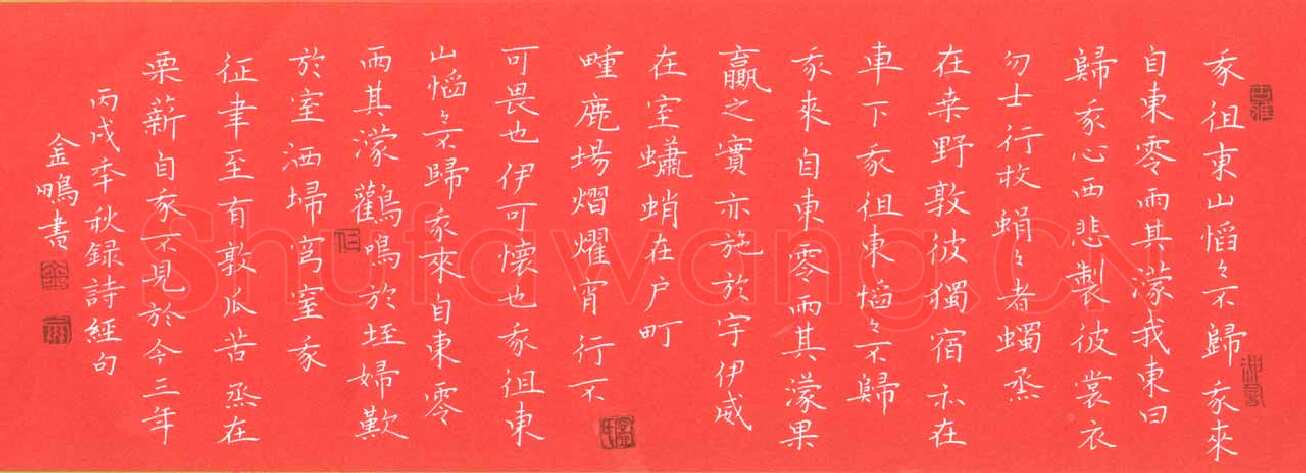 我徂東山慆々不歸我來
自東零雨其濛我東曰
歸我心西悲製彼裳衣
勿士行枚蜎々者蠋烝
在桒野敦彼獨宿亦在
車下我徂東慆々不歸
我來自東零雨其濛果
臝之實亦施於宇伊威
在室蠨蛸在户町
畽鹿場熠燿宵行不
可畏也伊可懷也我徂東
山慆々不歸我來自東零
雨其濛鸛鳴於垤婦歎
於室洒埽穹窒我
征聿至有敦瓜苦烝在
栗薪自我不見於今三年
丙戌季秋録詩經句
金鳴書
Shufawang.CN